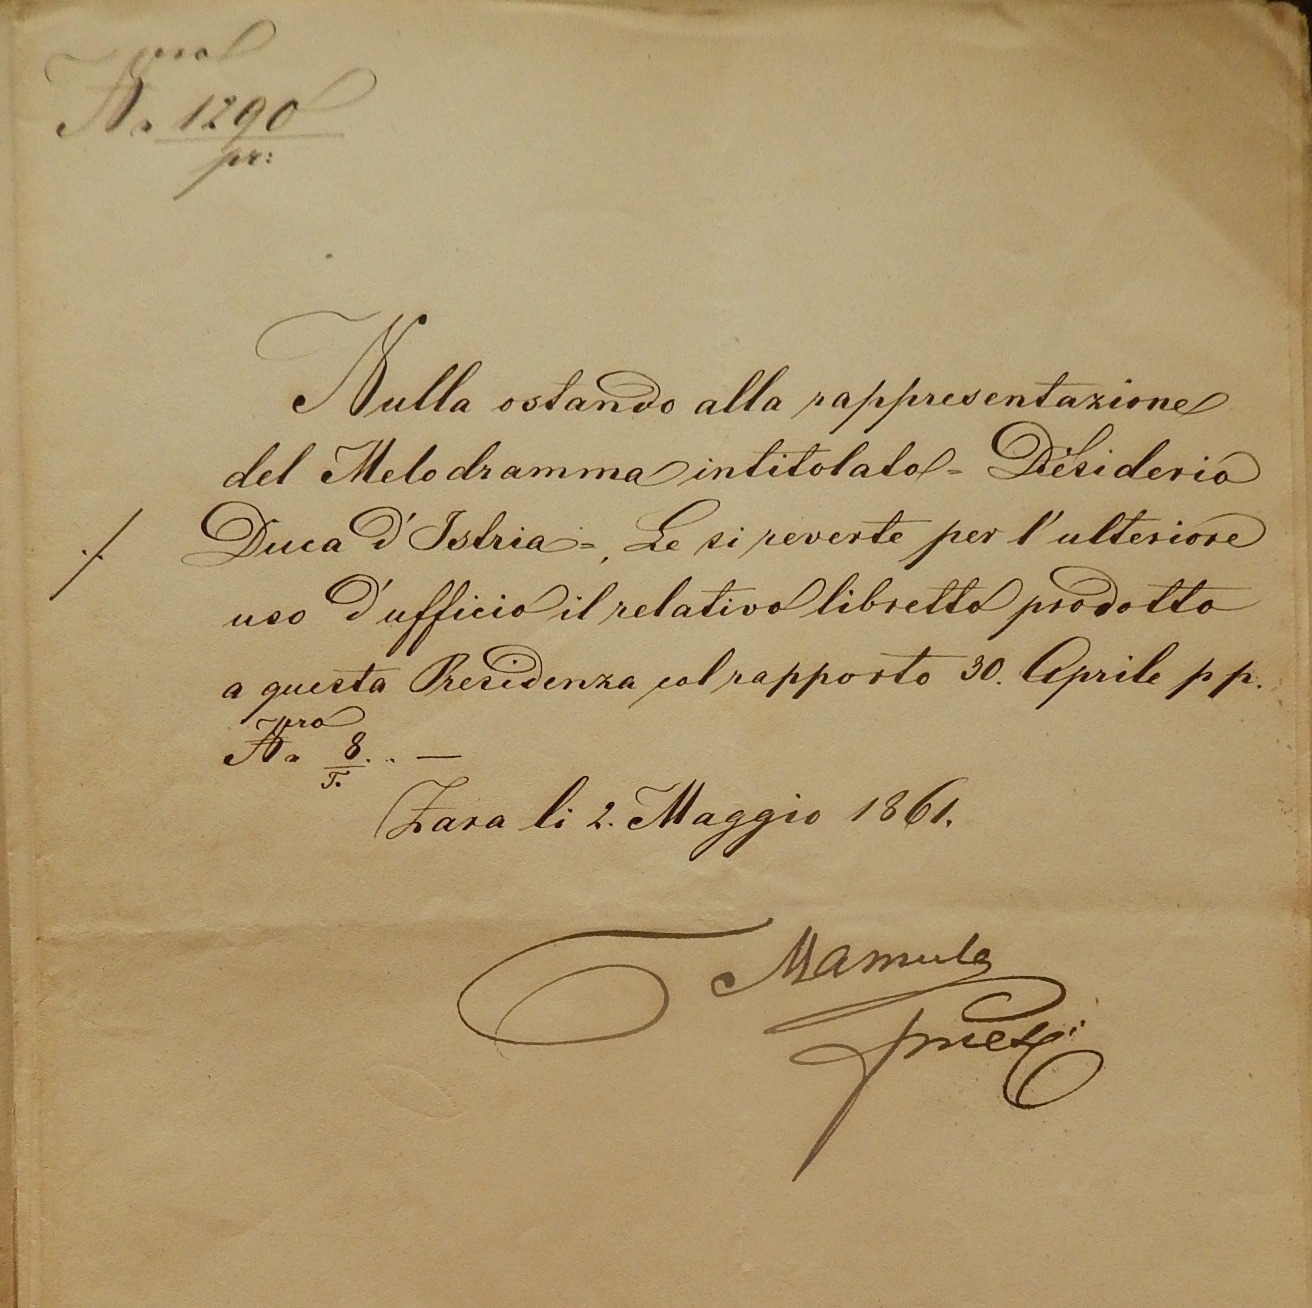 N.ro 1290
pr:
Nulla ostando alla rappresentazione
del Melodramma intitolato = Desiderio
./. Duca d'Istria =, Le si reverte per l'ulteriore
uso d'ufficio il relativo libretto prodotto
a questa Presidenza col rapporto 30. Aprile p p.
N.ro 8/T. . —
Zara li 2. Maggio 1861.
Mamula